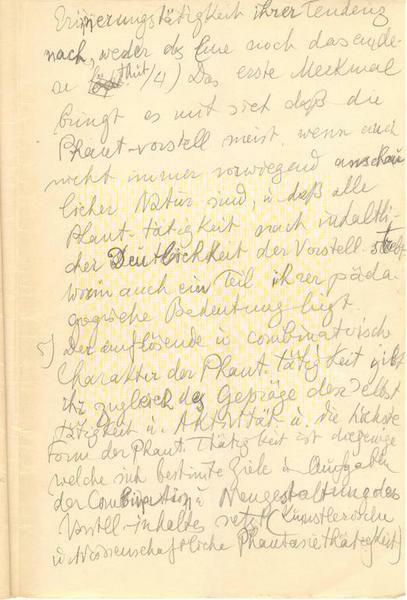 Erinnerungstätigkeit ihrer Tendenz
nach, weder das Eine noch das ande-
re thut /4) Das erste Merkmal
bringt es mit sich daß die
Phant-vorstell meist, wenn auch
nicht immer vorwiegend anschau
licher Natur sind, u daß alle
Phant. tätigkeit nach inhaltli-
cher Deutlichkeit der Vorstell. strebt
worin auch ein Teil ihrer päda
gogische Bedeutung liegt.
5) Der auflösende u combinatorische
Charakter der Phant. tätigkeit gibt
ihr zugleich das Gepräge der Selbst
tätigkeit u. Aktivität u. die höchste
Form der Phant. Thätigkeit ist diejenige
welche sich bestimte Ziele u Aufgaben
der Combination u Neugestaltung des
Vorstell-inhaltes setzt (Künstlerische
u wissenschaftliche Phantasiethätigkeit)